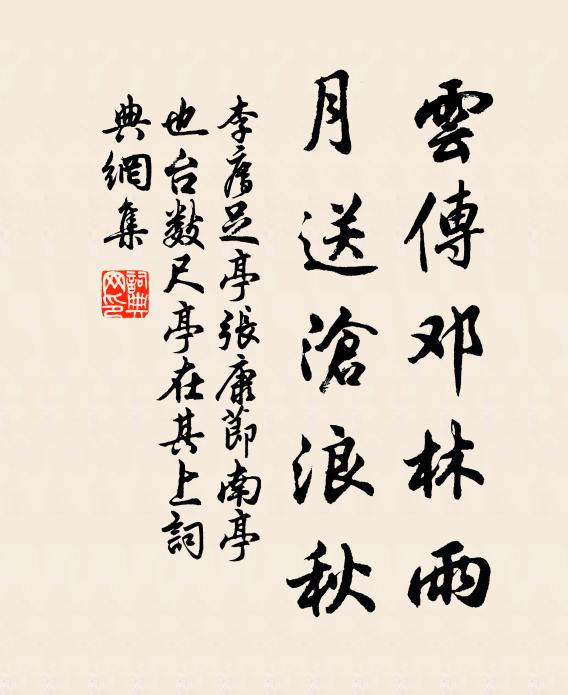 雲傳邓林雨
月送滄浪秋
李膺足亭張康節南亭
也台数尺亭在其上詞
典網集
詞典
网印